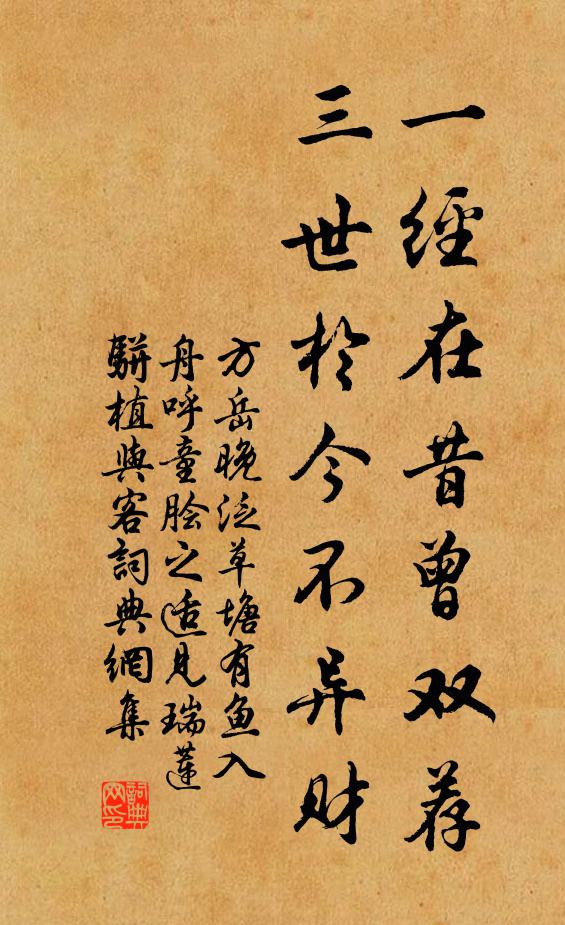 一經在昔曾双荐
三世於今不异财
方岳晚泛草塘有鱼入
舟呼童脍之适见瑞莲
駢植與客詞典網集
詞典
网印